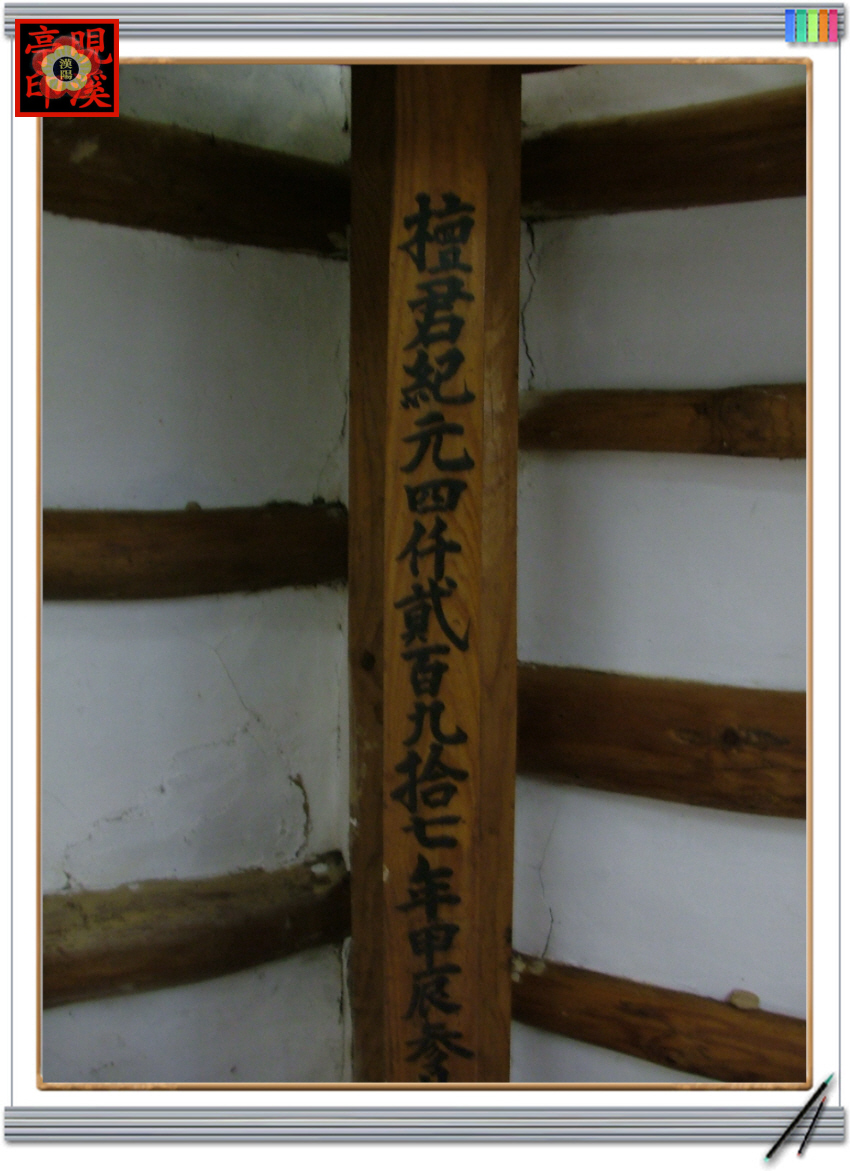 檀君紀元四仟貳百九拾七年甲辰参
溪
亭印
漢陽